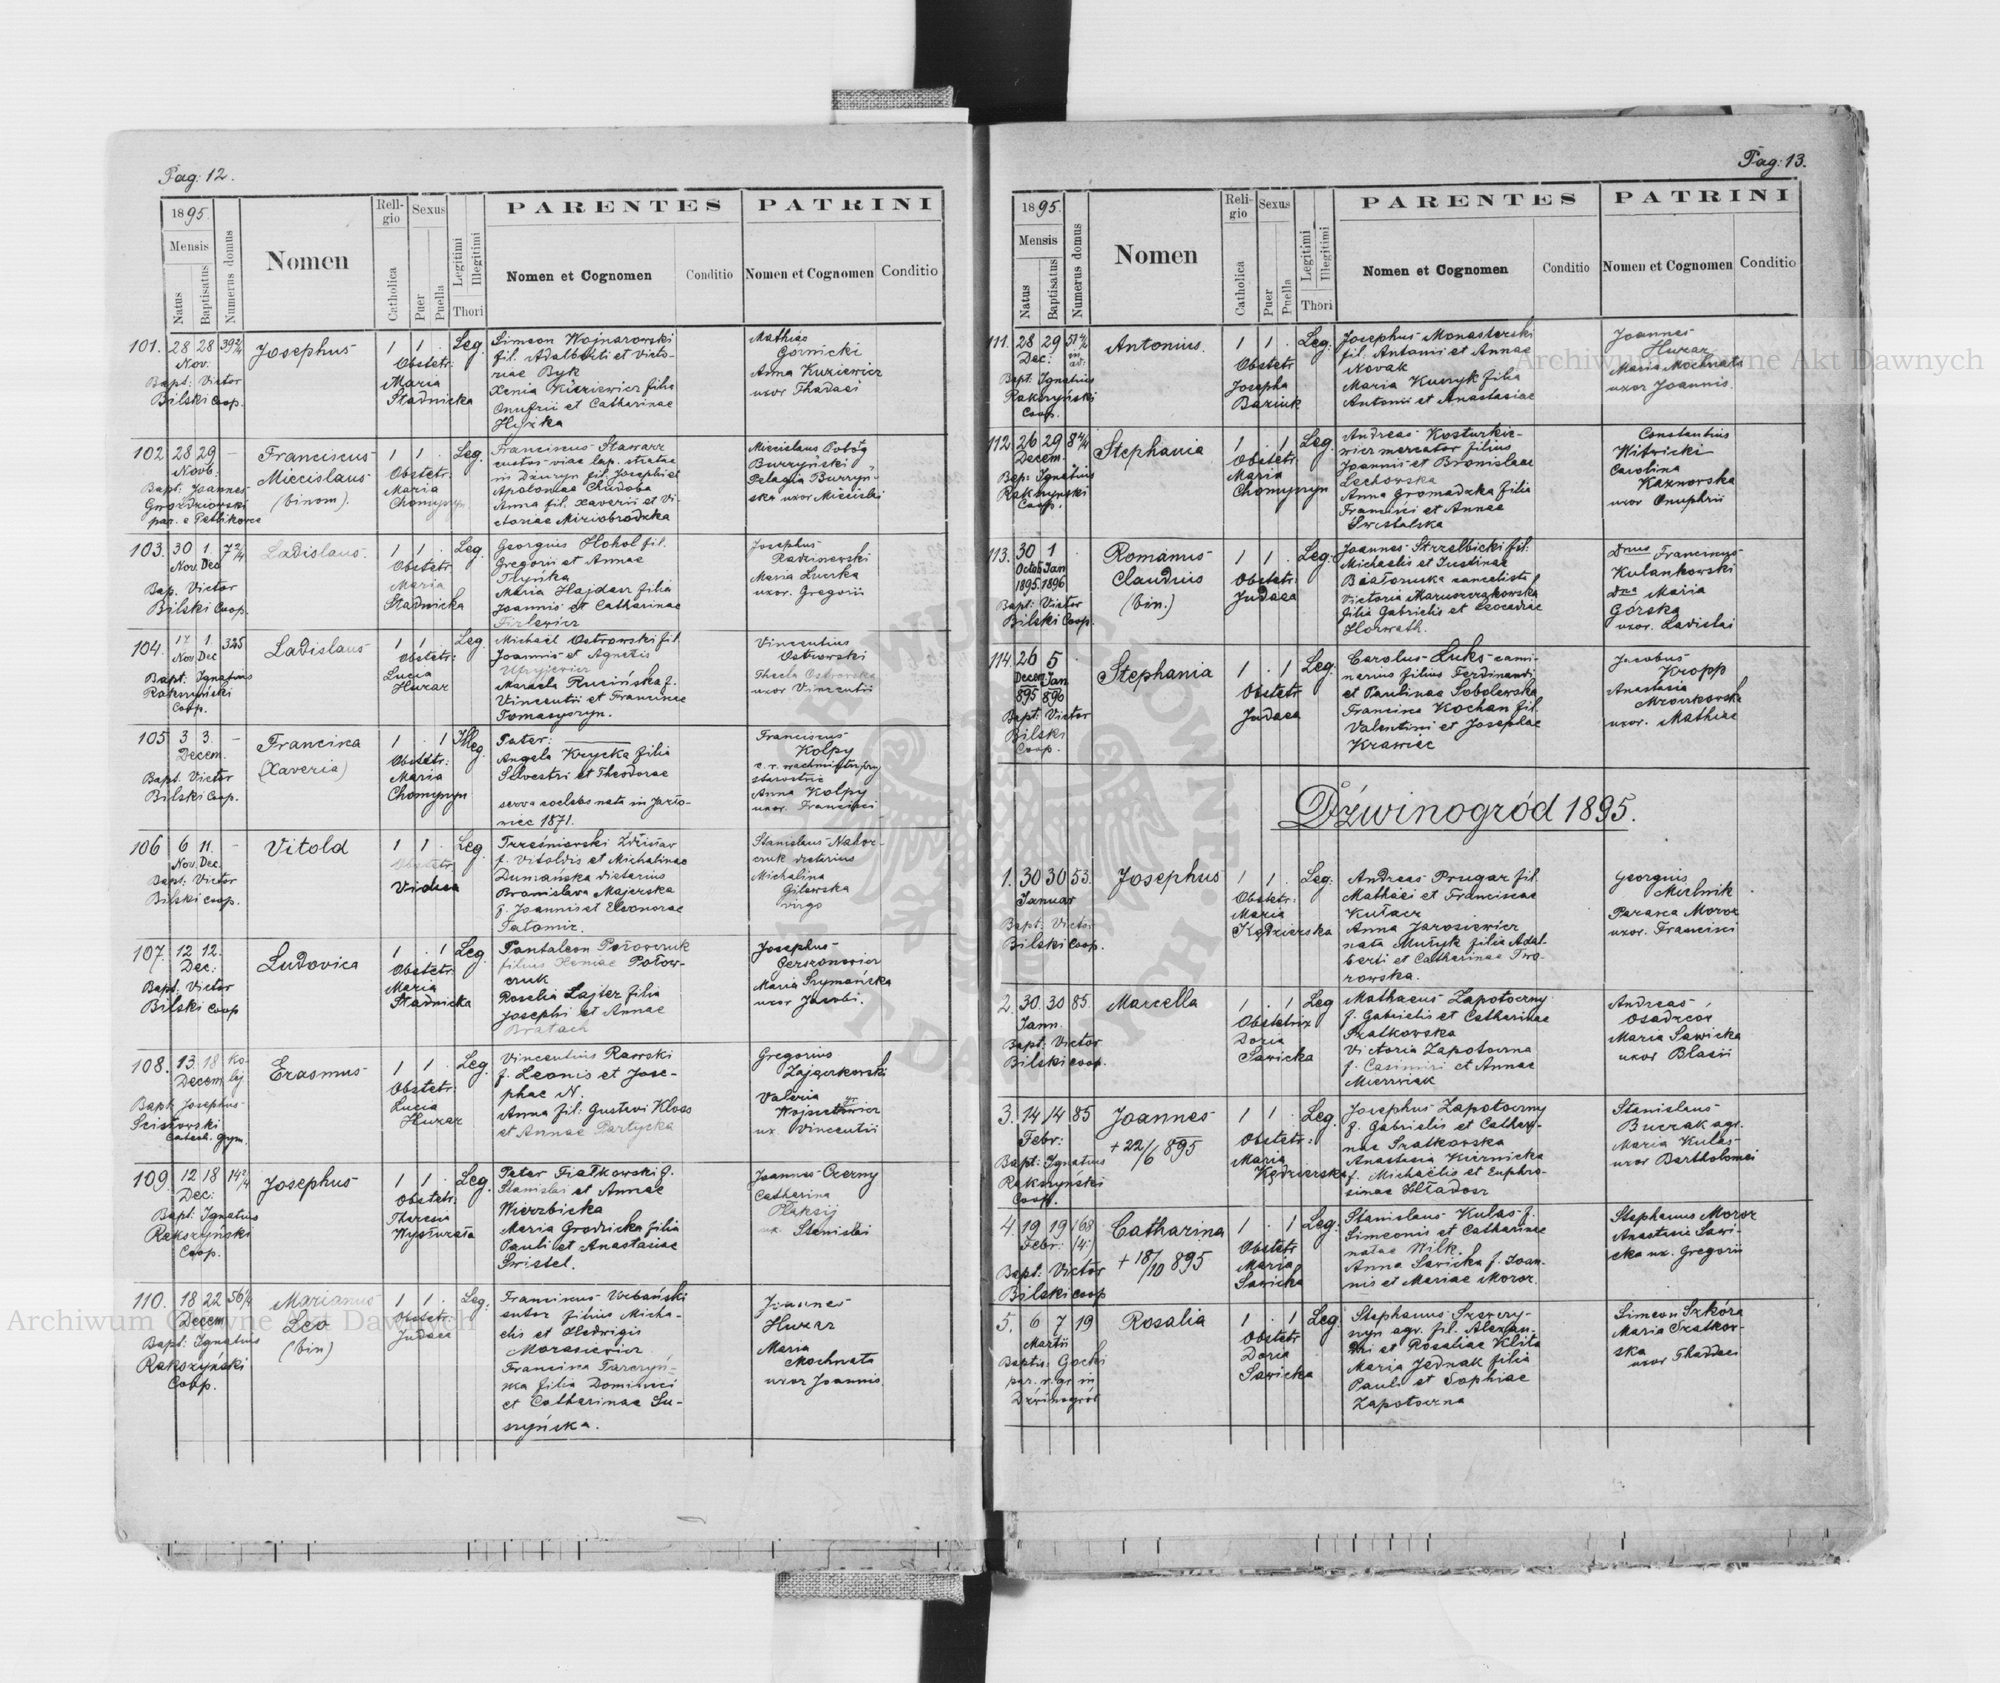 Pag: 12.
1895.
Mensis
Natus
Baptisatus
Numerus domus
Nomen
Religio
Catholica
Sexus
Puer
Puella
Legitimi
Illegitimi
Thori
PARENTES
Nomen et Cognomen
Conditio
PATRINI
Nomen et Cognomen
Conditio
101. 28 28
Nov.
Bapt: Victor
Bilski Coop.
Josephus
1 1 . Leg.
Obstetr:
Maria
Stadnicka
Simeon Wojnarowski
fil. Adalberti et Victo-
riae Byk
Xenia Kiziewicz filia
Onufrii et Catharinae
Hyżka
Mathias
Górnicki
Anna Kuziewicz
uxor Thadaei
102 28 29 -
Novb.
Bapt: Joannes
Gwoździowski
par. e Petlikowce
Franciscus
Miecislaus
(binom).
1 1 . Leg.
Obstetr.
Maria
Chomyszyn
Franciscus Stawarz
custos viae lap. stratae
in Dżuryn fil. Josephi et
Apoloniae Chudoba
Anna fil. Xaverii et Vi-
ctoriae Miziobrodzka
Miecislaus
Burzyński
Pelagia Burzyń-
ska uxor Miecislai
103. 30 1. 7 2/4
Nov. Dec
Bap. Victor
Bilski Coop.
Ladislaus
1 1 . Leg.
Obstetr
Maria
Stadnicka
Georgius Hohol fil.
Gregorii et Annae
Maria Hajdasz filia
Joannis et Catharinae
Firlewicz
Josephus
Radzinowski
Maria
uxor. Gregorii
104. 17 1. 325
Nov Dec
Bapt. Ignatius
Rakszyński
Coop.
Ladislaus
1 1 . Leg.
Obstetr:
Lucia
Huzar
Michaël Ostrowski fil.
Joannis et Agnetis
Marcela Ruzińska f.
Vincentii et Franciscae
Tomaszyn.
Vincentius
Ostrowski
Thecla Ostrowska
uxor Vincentii
105 3 3. -
Decem.
Bapt. Victor
Bilski Coop.
Francisca
(Xaveria)
1 . 1 Illeg.
Obstetr:
Maria
Chomyszyn
Pater:
Angela Krycka filia
Silvestri et Theodorae
serva coelebs nata in Jazło-
wiec 1871.
Franciscus
Kolpy
Anna Kolpy
uxor. Francisci
106 6 11. -
Nov. Dec.
Bapt: Victor
Bilski Coop.
Vitold
1 1 . Leg.
Obstetr
Trześniowski Zdzisław
f. Vitoldis et Michalinae
Dumańska dietarius
Bronislava Majerska
f. Joannis et Eleonorae
Stanislaus Nahor-
czuk dietarius
Michalina
Gilewska
virgo
107. 12 12.
Dec:
Bapt: Victor
Bilski Coop
Ludovica
1 . 1 Leg.
Obstetr:
Maria
Stadnicka
Pantaleon Połowczuk
filius Xeniae Połow-
czuk
Rosalia Lajter filia
Josephi et Annae
Josephus
Gerszonowicz
Maria Szymańska
uxor Jacobi.
108. 13. 18 Ko-
lej
Decem
Bapt: Josephus
Sciszowski
Catech. gym.
Erasmus
1 1 . Leg.
Obstetr:
Lucia
Huzar
Vincentius Rawski
f. Leonis et Jose-
phae N.
Anna fil: Gustavi Kloss
et Annae Partycka
Gregorius
Zajączkowski
Valeria
ux. Vincentii
109 12 18 14 2/4
Dec:
Bapt: Ignatius
Rakszyński
Coop.
Josephus
1 1 . Leg.
Obstetr.
Theresia
Peter Fiałkowski f.
Stanislai et Annae
Wierzbicka
Maria Grodzicka filia
Pauli et Anastasiae
Świstel.
Joannes Czerny
Catharina
Plaksij
ux. Stanislai
110. 18 22 56/4
Decem
Bapt: Ignatius
Rakszyński
Coop.
Marianus
Leo
(bin)
1 1 . Leg:
Obstetr:
Judaea
Franciscus Urbański
sutor filius Micha-
elis et Hedvigis
Morasiewicz
Francisca Tarczyń-
ska filia Dominici
et Catharinae Su-
szyńska.
Joannes
Huzar
Maria
Mochnata
uxor Joannis
Pag: 13.
1895.
Mensis
Natus
Baptisatus
Numerus domus
Nomen
Religio
Catholica
Sexus
Puer
Puella
Legitimi
Illegitimi
Thori
PARENTES
Nomen et Cognomen
Conditio
PATRINI
Nomen et Cognomen
Conditio
111. 28 29
Dec:
Bapt: Ignatius
Rakszyński
Coop.
Antonius.
1 1 . Leg.
Obstetr
Josepha
Baziuk
Josephus Monasterski
fil. Antonii et Annae
Novak
Maria Kuszyk filia
Antonii et Anastasiae
Joannes
Huzar
Maria Mochnata
uxor Joannis.
112. 26 29
Decem.
Bap: Ignatius
Rakszyński
Coop.
Stephania
1 . 1 Leg.
Obstetr.
Maria
Chomyszyn
Andreas Kosturkie-
wicz mercator filius
Joannis et Bronislaae
Lechowska
Anna Gromadzka filia
Francisci et Annae
Swistalska
Constantius
Witwicki
Carolina
Kaznowska
uxor Onuphrii
113. 30 1
Octob Jan
1895. 1896
Bapt: Victor
Bilski Coop.
Romanus
Claudius
(bin.)
1 1 . Leg.
Obstetr:
Judaea
Joannes Strzelbicki fil:
Michaelis et Justinae
Białoruska cancelista
Victoria Maruszczakowska
filia Gabrielis et Leocadiae
Horwath.
Dnus Franciscus
Kulankowski
Dna Maria
Górska
uxor. Ladislai
114. 26 5
Decem Jan
895 896
Bapt: Victor
Bilski
Coop.
Stephania
1 . 1 Leg.
Obstetr.
Judaea
Carolus Luks cami-
narius filius Ferdinandi
et Paulinae Sobolewska
Francisca Kochan fil.
Valentini et Josephae
Krawiec
Jacobus
Kropp
Anastasia
Mroczkowska
uxor. Mathiae
Dźwinogród 1895.
1. 30 30 53.
Januar
Bapt: Victor
Bilski Coop.
Josephus
1 1 . Leg:
Obstetr:
Maria
Kędzierska
Andreas Prugar fil.
Mathaei et Franciscae
Kułacz
Anna Jarosiewicz
nata Mułyk filia Adal-
berti et Catharinae Two-
rowska.
Georgius
Mielnik
Parasca Moroz
uxor. Francisci
2. 30. 30 85.
Jann.
Bapt: Victor
Bilski Coop.
Marcella
1 . 1 Leg
Obstetrix
Doria
Sawicka
Mathaeus Zapotoczny
f. Gabrielis et Catharinae
Szatkowska
Victoria Zapotoczna
f. Casimiri et Annae
Mierzwiak
Andreas
Osadców
Maria Sawicka
uxor Blasii
3. 14 14 85
Febr:
Bapt: Ignatius
Rakszyński
Coop.
Joannes
+ 22/6 895
1 1 . Leg.
Obstetr:
Maria
Kędzierska
Josephus Zapotoczny
f. Gabrielis et Cathari-
nae Szatkowska
Anastasia Kiernicka
f. Michaëlis et Euphro-
sinae
Stanislaus
Buczak agr.
Maria Kulas
uxor Bartholomei
4. 19 19 168
Febr:
Bapt: Victor
Bilski Coop
Catharina
+ 18/10 895
1 . 1 Leg:
Obstetr
Maria
Sawicka
Stanislaus Kulas f.
Simeonis et Catharinae
natae Wilk.
Anna Sawicka f. Joan-
nis et Mariae Moroz.
Stephanus Moroz
Anastasia Sawi-
cka ux. Gregorii
5. 6 7 19
Martii
Baptis: Gocki
par. r. gr. in
Dźwinogród
Rosalia
1 . 1 Leg.
Obstetr:
Doria
Sawicka
Stephanus Szewczy-
szyn agr. fil. Alexan-
dri et Rosaliae Klita
Maria Jednak filia
Pauli et Sophiae
Zapotoczna
Simeon Szkóra
Maria Szatkow-
ska
uxor Thaddaei
Archiwum Główne Akt Dawnych
Archiwum Główne Akt Dawnych